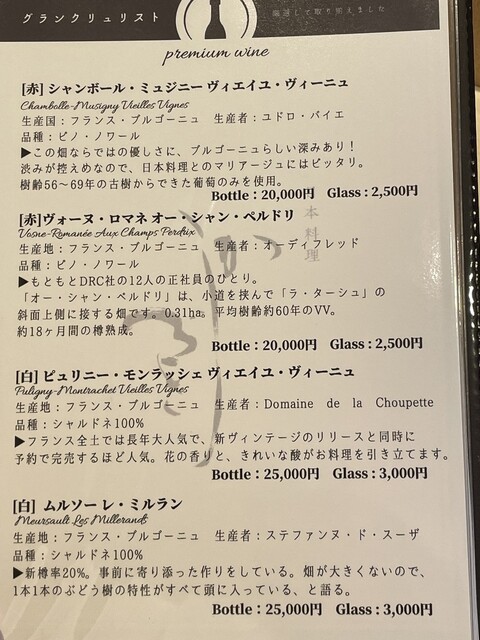 グランクリュリスト
厳選して取り揃えました
premium wine
[赤] シャンボール・ミュジニー ヴィエイユ・ヴィーニュ
Chambolle-Musigny Vieilles Vignes
生産国：フランス・ブルゴーニュ　生産者：ユドロ・バイエ
品種：ピノ・ノワール
▶この畑ならではの優しさに、ブルゴーニュらしい深みあり！
渋みが控えめなので、日本料理とのマリアージュにはピッタリ。
樹齢56～69年の古樹からできた葡萄のみを使用。
Bottle：20,000円　Glass：2,500円
[赤]ヴォーヌ・ロマネ オー・シャン・ペルドリ
Vosne-Romanée Aux Champs Perdrix
生産地：フランス・ブルゴーニュ　生産者：オーディフレッド
品種：ピノ・ノワール
▶もともとDRC社の12人の正社員のひとり。
「オー・シャン・ペルドリ」は、小道を挟んで「ラ・ターシュ」の
斜面上側に接する畑です。0.31ha。平均樹齢約60年のVV。
約18ヶ月間の樽熟成。
Bottle：20,000円　Glass：2,500円
本料理
[白] ピュリニー・モンラッシェ ヴィエイユ・ヴィーニュ
Puligny-Montrachet Vieilles Vignes
生産地：フランス・ブルゴーニュ　生産者：Domaine de la Choupette
品種：シャルドネ100%
▶フランス全土では長年大人気で、新ヴィンテージのリリースと同時に
予約で完売するほど人気。花の香りと、きれいな酸がお料理を引き立てます。
Bottle：25,000円　Glass：3,000円
[白] ムルソー レ・ミルラン
Meursault Les Millerands
生産地：フランス・ブルゴーニュ　生産者：ステファンヌ・ド・スーザ
品種：シャルドネ100%
▶新樽率20%。事前に寄り添った作りをしている。畑が大きくないので、
1本1本のぶどう樹の特性がすべて頭に入っている、と語る。
Bottle：25,000円　Glass：3,000円